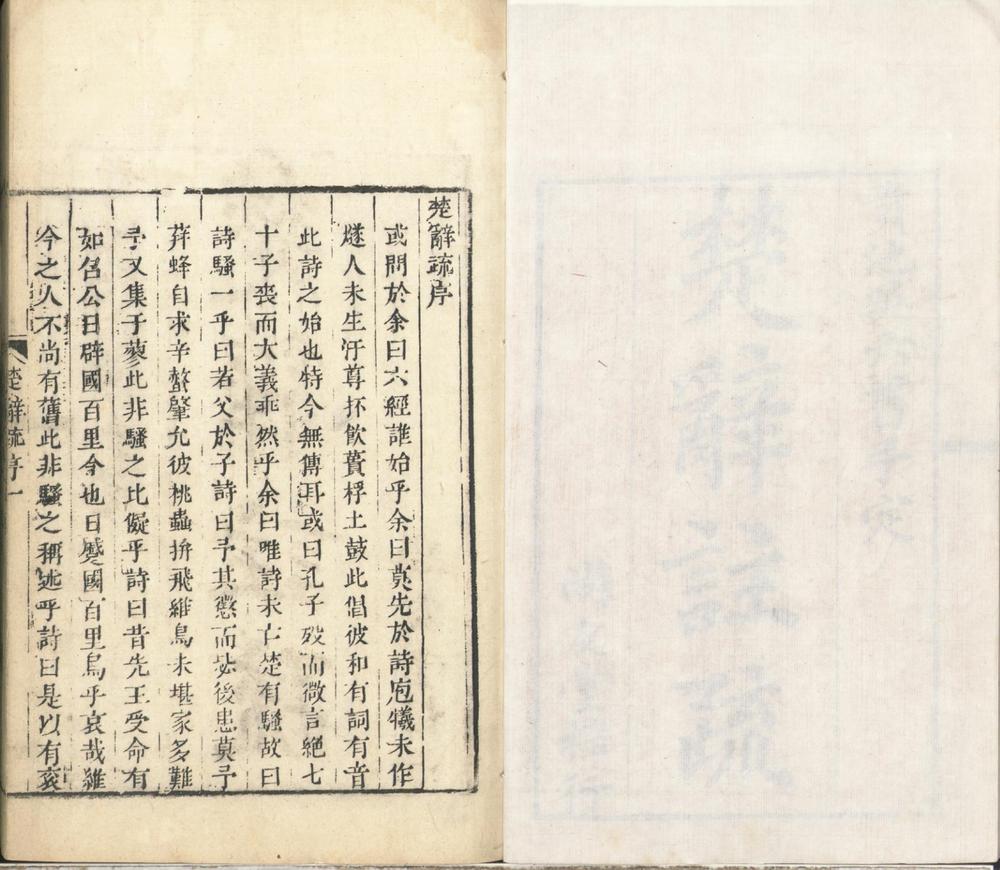 楚辭疏序
或問於余曰六經誰始乎余曰莫先於詩庖犧未作
燧人未生汙尊抔飲蕢桴土鼓此倡彼和有詞有音
此詩之始也特今無傳耳或曰孔子歿而微言絕七
十子喪而大義乖然乎余曰唯詩未亡楚有騷故曰
詩騷一乎曰若父於子詩曰予其懲而毖後患莫予
荓蜂自求辛螫肇允彼桃蟲拚飛維鳥未堪家多難
予又集于蓼此非騷之比儗乎詩曰昔先王受命有
如召公日辟國百里今也日蹙國百里烏乎哀哉維
今之人不尚有舊此非騷之稱述乎詩曰是以有袞
楚辭疏序 一
楚辭註疏